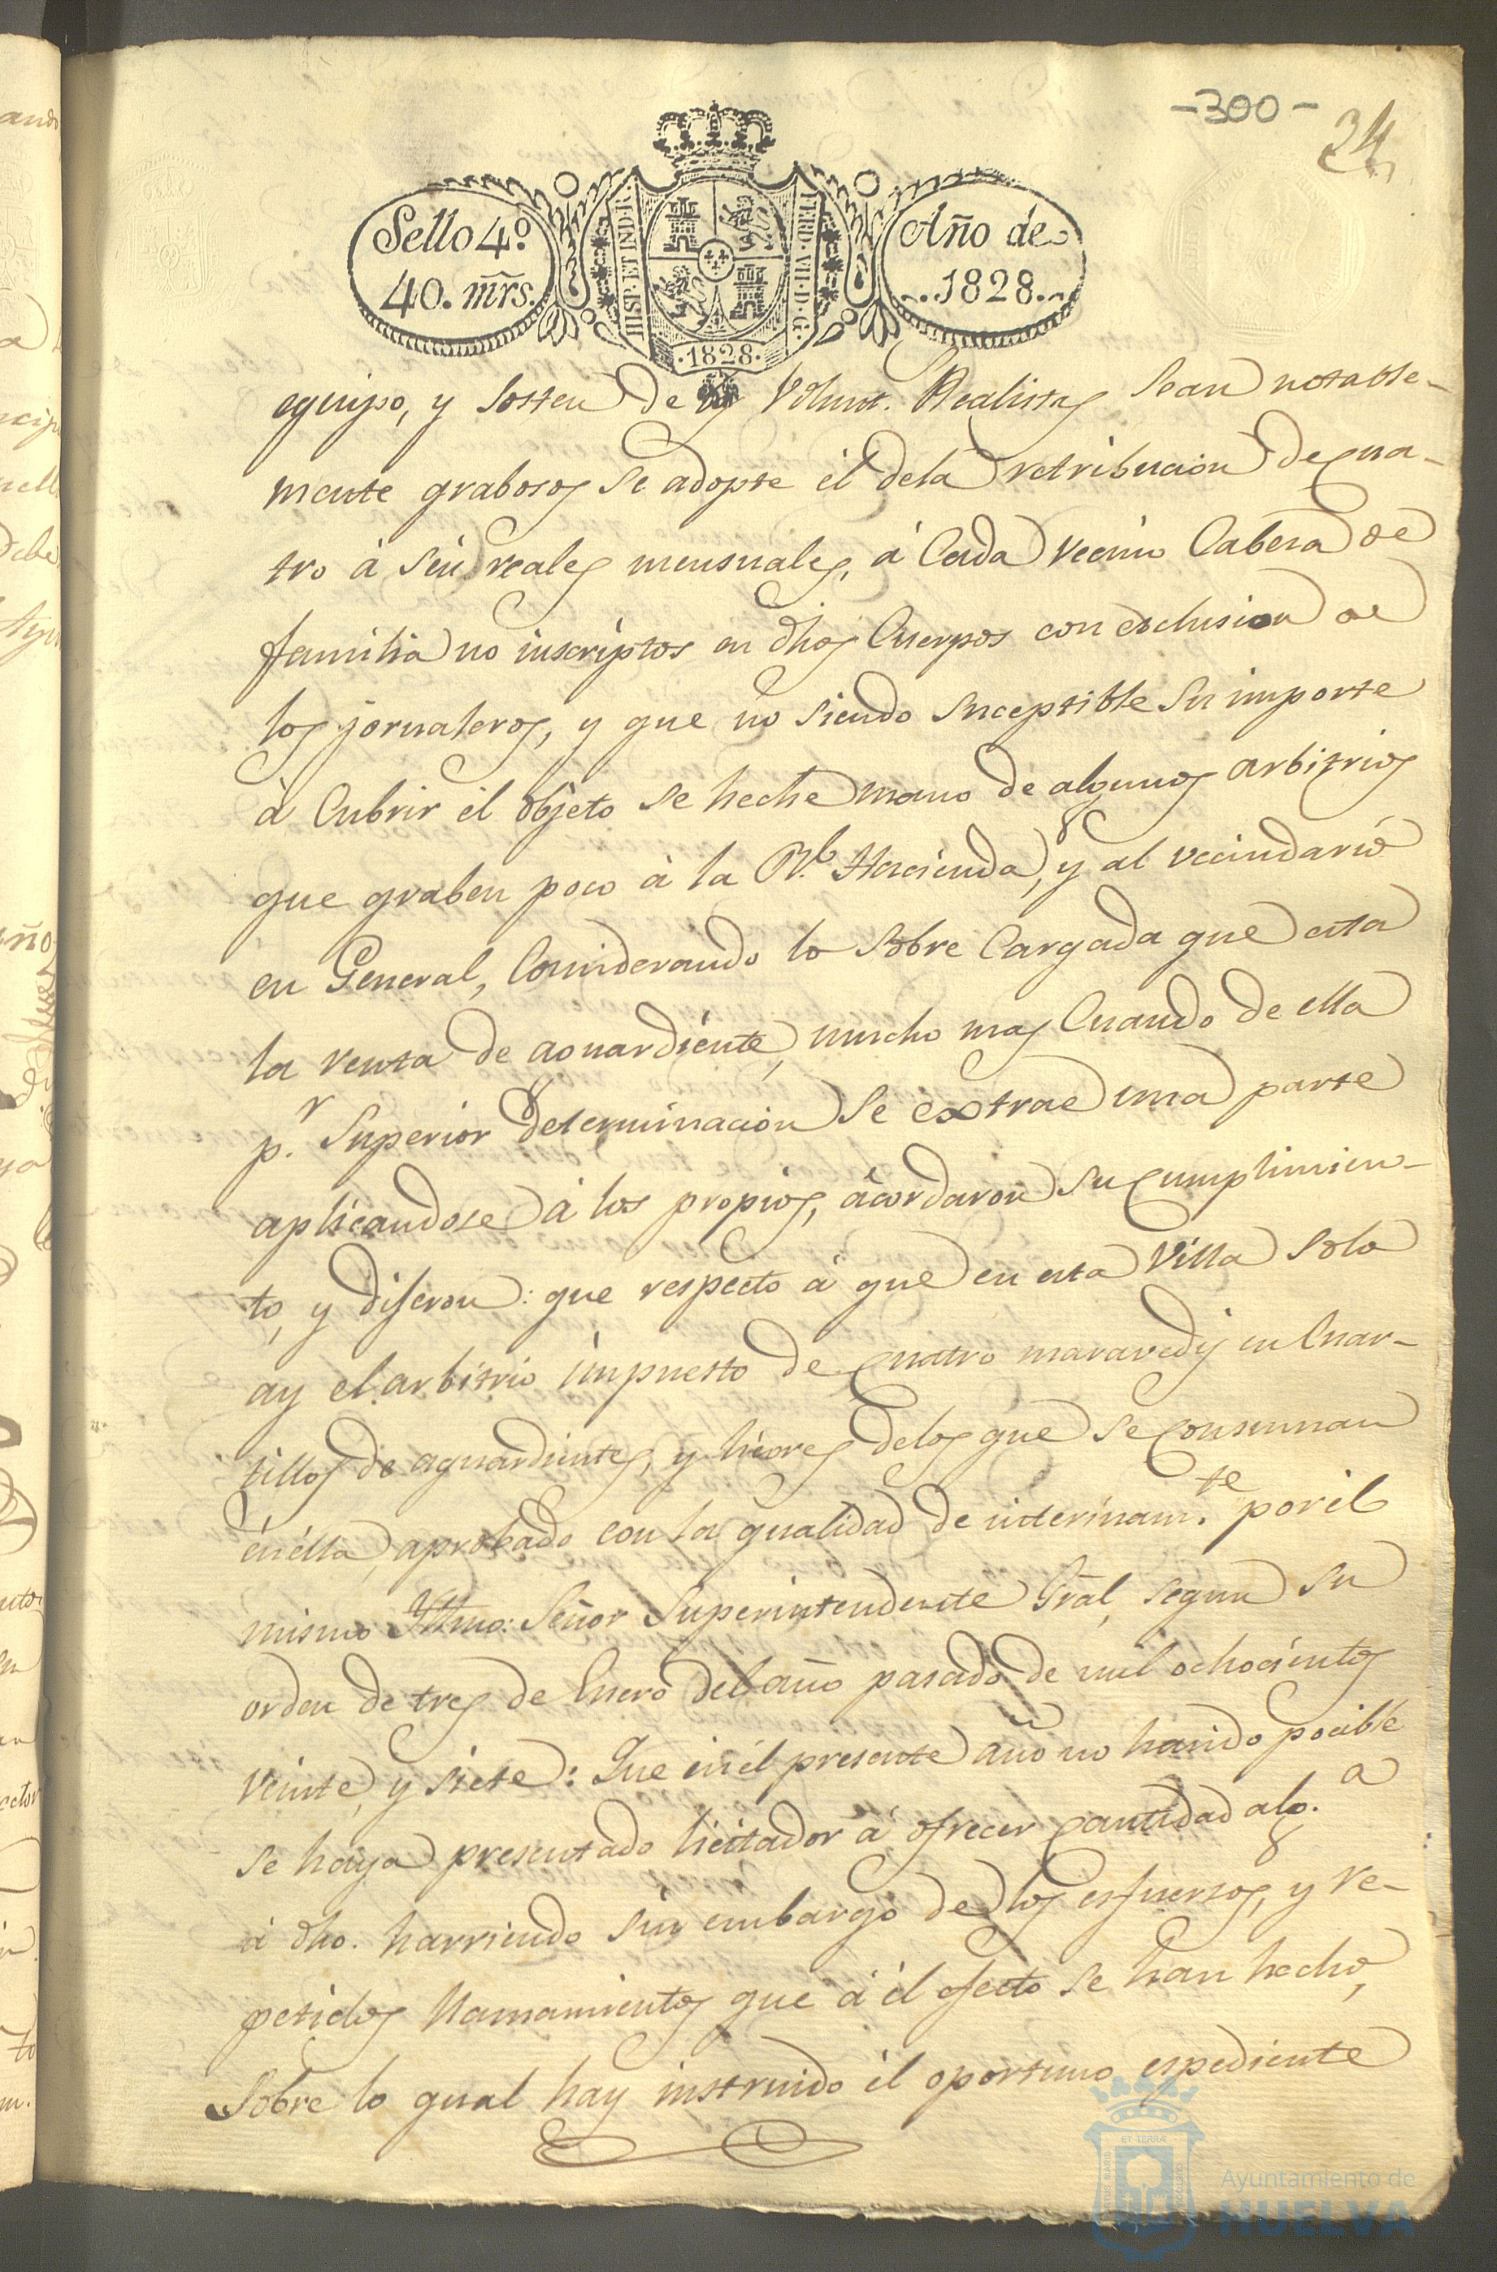 -300-
24
Sello 4.º
40. mrs.
HISP. ET IND. R.
FERD. VII. D. G.
.1828.
Año de
..1828..
equipo, y sosten de los Volunt. Realistas sean notable-
mente grabosos se adopte él dela retribucion de qua-
tro à séis reales mensuales, à Cada vecino Cabesa de
familia no inscriptos en dhos Cuerpos con esclusion de
los jornaleros, y que no siendo suceptible su importe
à Cubrir él objeto se heche mano de algunos arbitrios
que graben poco à la Rl. Hacienda, y al vecindario
en General, Considerando lo sobre Cargada que esta
la venta de aguardiente, mucho mas Cuando de ella
p.r Superior determinacion se extrae una parte
aplicandose à los propios, acordaron su cumplimien-
to, y diseron: que respecto á que en esta Villa solo
ay el arbitrio impuesto de quatro maravedis en Cuar-
tillos de aguardientes, y licores delos que se consuman
én élla, aprobado con la qualidad de interinam.te por él
mismo Iltmo: Señor Superintendente Grãl, segun su
orden de tres de Enero del año pasado de mil ochocientos
veinte, y siete: Que en él presente año no hasido pocible
se haya presentado licitador á ofrecer cantidad alg.a
á dho. harriendo sin embargo de los esfuersos, y re-
petidos llamamientos que á él efecto se han hecho,
Sobre lo qual hay instruido él oportuno espediente
Ayuntamiento de
HUELVA